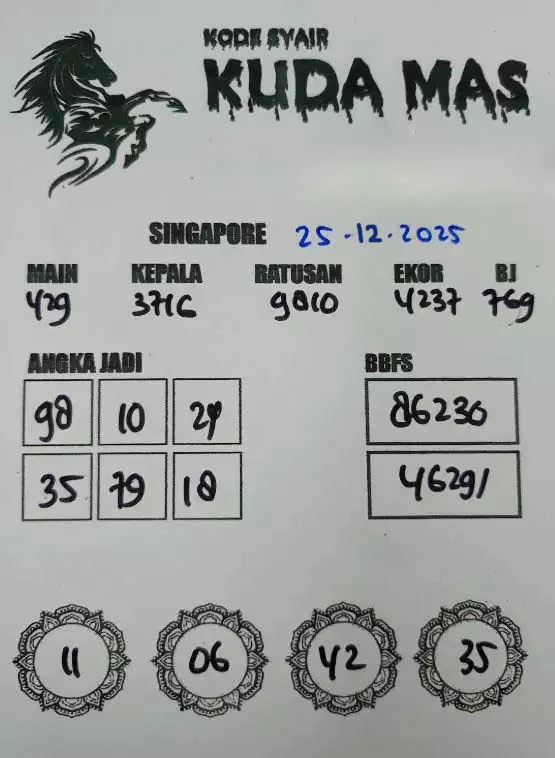 KODE SYAIR
KUDA MAS
SINGAPORE 25-12-2025
MAIN KEPALA RATUSAN EKOR BJ
429 3716 9810 4237 769
ANGKA JADI BBFS
98 10 24 86230
35 79 18 46291
11 06 42 35